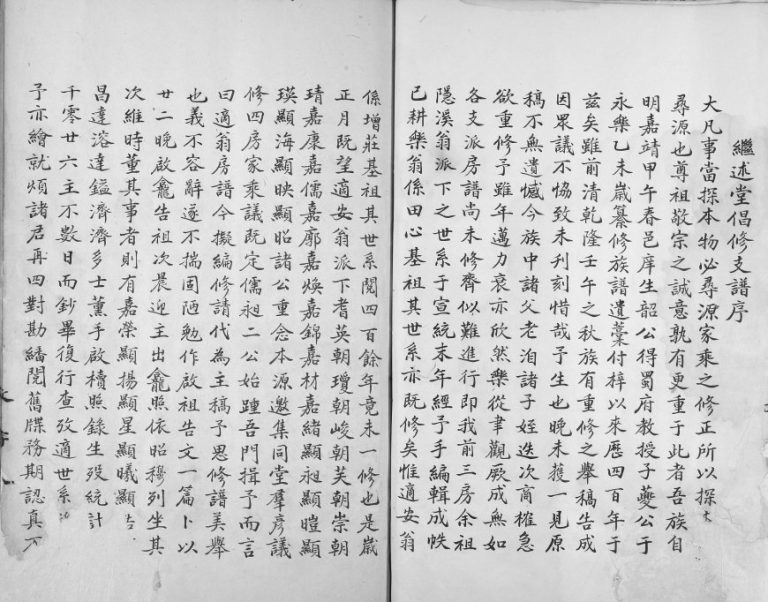 繼述堂倡修支譜序
大凡事當探本物必尋源家乘之修正所以探
尋源也尊祖敬宗之誠意孰有更重于此者吾族自
明嘉靖甲午春邑庠生韶公得蜀府教授子夔公于
永樂乙未歲纂修族譜遺藁付梓以來歷四百年于
茲矣雖前清乾隆壬午之秋族有重修之舉稿告成
因眾議不恊致未刋刻惜哉予生也晚未獲一見原
稿不無遺憾今族中諸父老洎諸子姪迭次商榷急
欲重修予雖年邁力衰亦欣然樂從聿觀厥成無如
各支派房譜尚未修齊似難進行即我前三房余祖
隱溪翁派下之世系于宣統末年經予手編輯成帙
己耕樂翁係田心基祖其世系亦既修矣惟適安翁
係增莊基祖其世系閱四百餘年竟未一修也是歲
正月既望適安翁派下耆英朝瓊朝峻朝芙朝崇朝
琦嘉康嘉儒嘉廓嘉煥嘉錦嘉材嘉緒顯昶顯暟顯
瑛顯海顯映顯昭諸公重念本源邀集同堂羣彥議
修四房家乘議既定儒昶二公始踵吾門揖予而言
曰適翁房譜今擬編修請代為主稿予思修譜美舉
也義不容辭遂不揣固陋勉作啟祖告文一篇卜以
廿二晚啟龕告祖次晨迎主出龕照依昭穆列坐其
次維時董其事者則有嘉榮顯揚顯星顯曦顯
昌達溶達鎰濟濟多士薰手啟櫝照錄生歿統計
千零廿六主不數日而鈔畢復行查攷適世系
予亦繪就煩諸君再四對勘繙閱舊牒務期認真